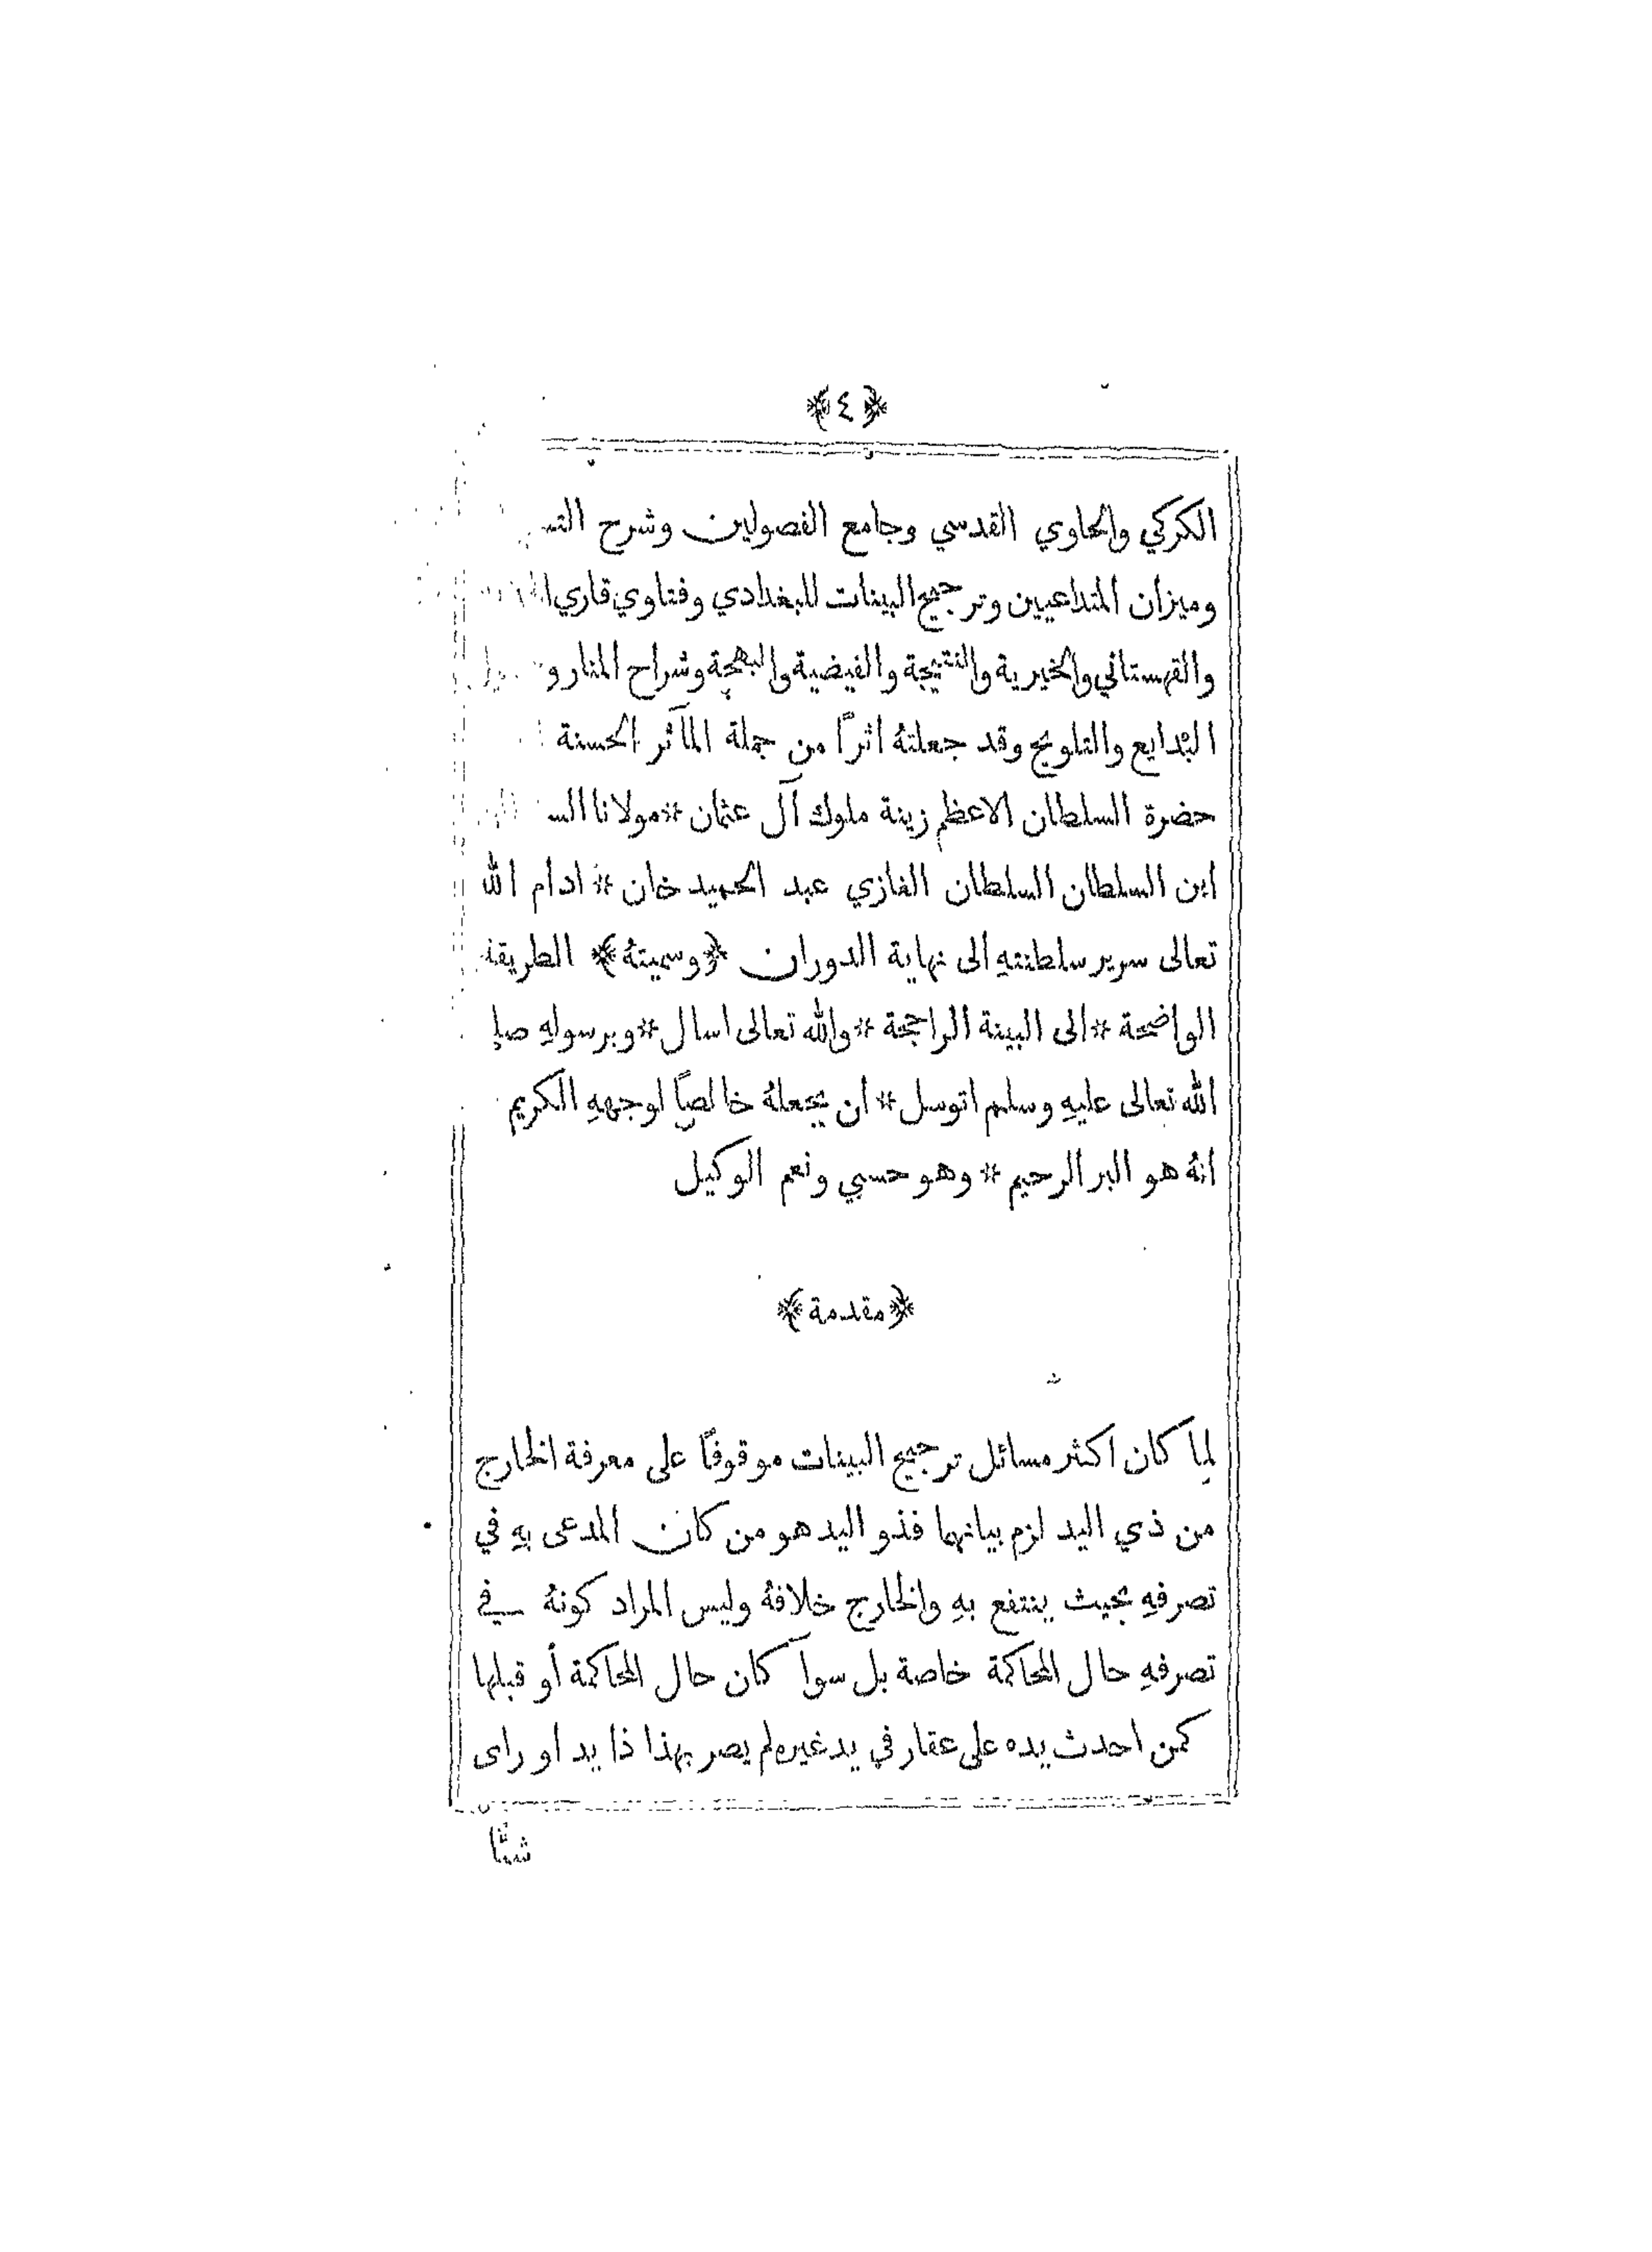 ﴿٤﴾
الكركي والحاوي القدسي وجامع الفصولين وشرح
وميزان المتداعيين وترجيح البينات للبغدادي وفتاوي قاري
والقهستاني والخيرية والنتيجة والفيضية والبهجة وشراح المنار و
البدايع والتلويح وقد جعلتهُ اثرًا من جملة المآثر الحسنة
حضرة السلطان الاعظم زينة ملوك آل عثمان * مولانا
ابن السلطان السلطان الغازي عبد الحميد خان * ادام الله
تعالى سرير سلطنتهِ الى نهاية الدوران ﴿وسميتهُ﴾ الطريقة
الواضحة * الى البينة الراجحة * والله تعالى اسال * وبرسولهِ
الله تعالى عليهِ وسلم اتوسل * ان يجعلهُ خالصًا لوجههِ الكريم
انهُ هو البر الرحيم * وهو حسبي ونعم الوكيل
﴿مقدمة﴾
لما كان اكثر مسائل ترجيح البينات موقوفًا على معرفة الخارج
من ذي اليد لزم بيانهما فذو اليد هو من كان المدعى بهِ في
تصرفهِ بحيث ينتفع بهِ والخارج خلافهُ وليس المراد كونهُ في
تصرفهِ حال المحاكمة خاصة بل سوآ كان حال المحاكمة أو قبلها
كمن احدث يده على عقار في يد غيره لم يصر بهذا ذا يد او راى
شيئًا